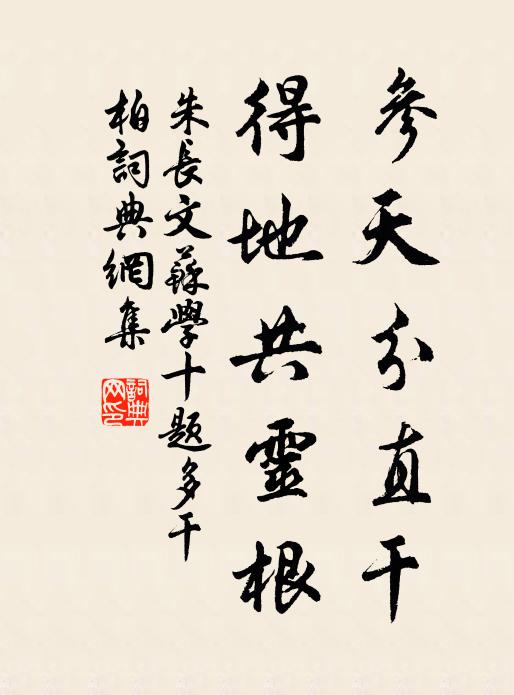 參天分直干
得地共靈根
朱長文蘇學十題多干
柏詞典網集
詞典网印